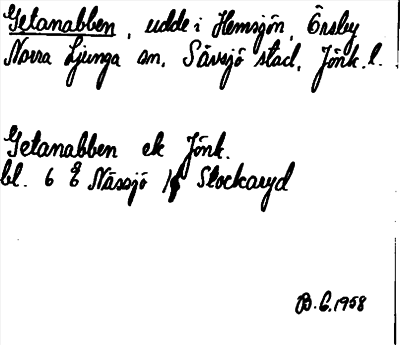 Getanabben, udde i Hemsjön, Örsby
Norra Ljunga sn, Sävsjö stad, Jönk. l.
Getanabben ek Jönk.
bl. 6 Nässjö Stockaryd
B. G. 1958